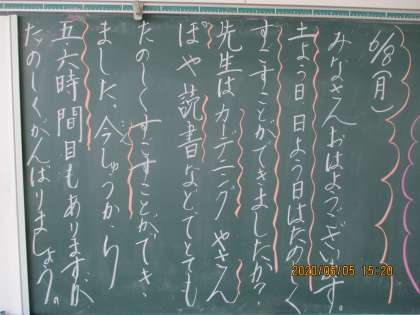 6/8(月)
みなさんおはようございます。
土よう日日よう日はたのしく
すごすことができましたか?
先生はガーデニングやさん
ぽや読書などでとても
たのしくすごすことができ
ました。今しゅうから
五六時間目もありますが
たのしくがんばりましょう。
2020/06/05 15:20